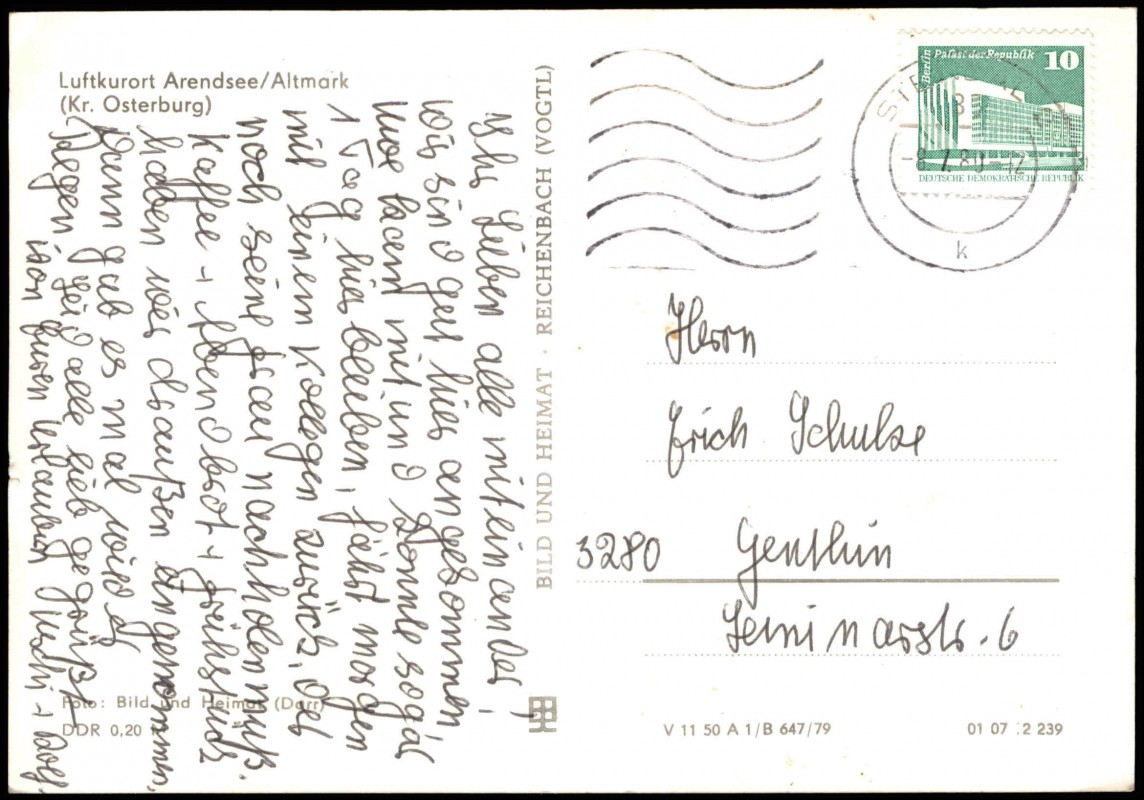 Luftkurort Arendsee/Altmark
(Kr. Osterburg)
Ihr Lieben alle miteinander,
wir sind gut hier angekommen
Uwe kam mit und konnte sogar
1 Tag hier bleiben, fährt morgen
mit einem Kollegen zurück, der
noch seine Frau nachholen muß.
Kaffee + Abendbrot + Frühstück
haben wir draußen eingenommen,
Dann gab es mal wieder
Regen. Seid alle lieb gegrüßt
von Euren Urlaubern Uschi + Rolf
Foto: Bild und Heimat (Darr)
DDR 0,20
BILD UND HEIMAT · REICHENBACH (VOGTL)
Berlin Palast der Republik 10
DEUTSCHE DEMOKRATISCHE REPUBLIK
-8.7.80-12
k
Herrn
Erich Schulze
3280 Genthin
Seminarstr. 6
V 11 50 A 1/B 647/79
01 07 2 239